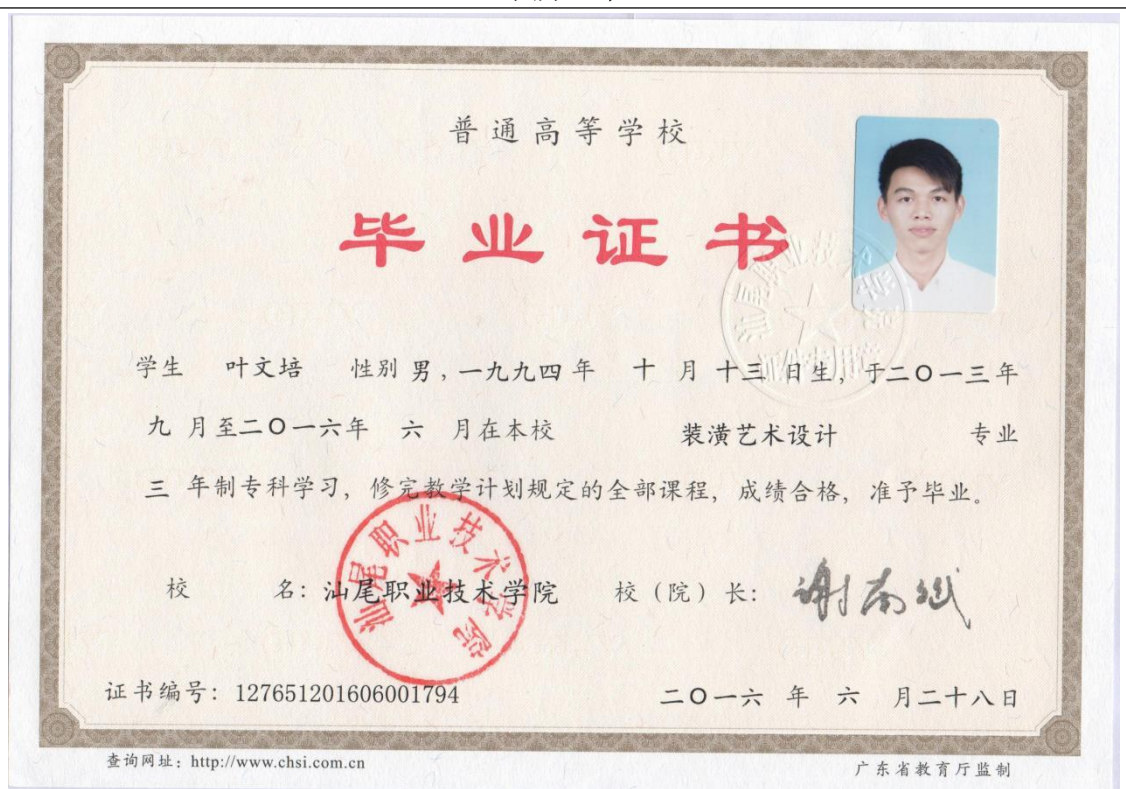 普通高等学校
毕业证书
学生 叶文培 性别 男，一九九四 年 十 月 十三 日生，于二〇一三年
九 月至二〇一六年 六 月在本校 装潢艺术设计 专业
三 年制专科学习，修完教学计划规定的全部课程，成绩合格，准予毕业。
校 名：汕尾职业技术学院 校（院）长：谢南斌
汕尾职业技术学院
汕尾职业技术学院
证件专用章
证书编号：127651201606001794 二〇一六 年 六 月二十八日
查询网址：http://www.chsi.com.cn 广东省教育厅监制